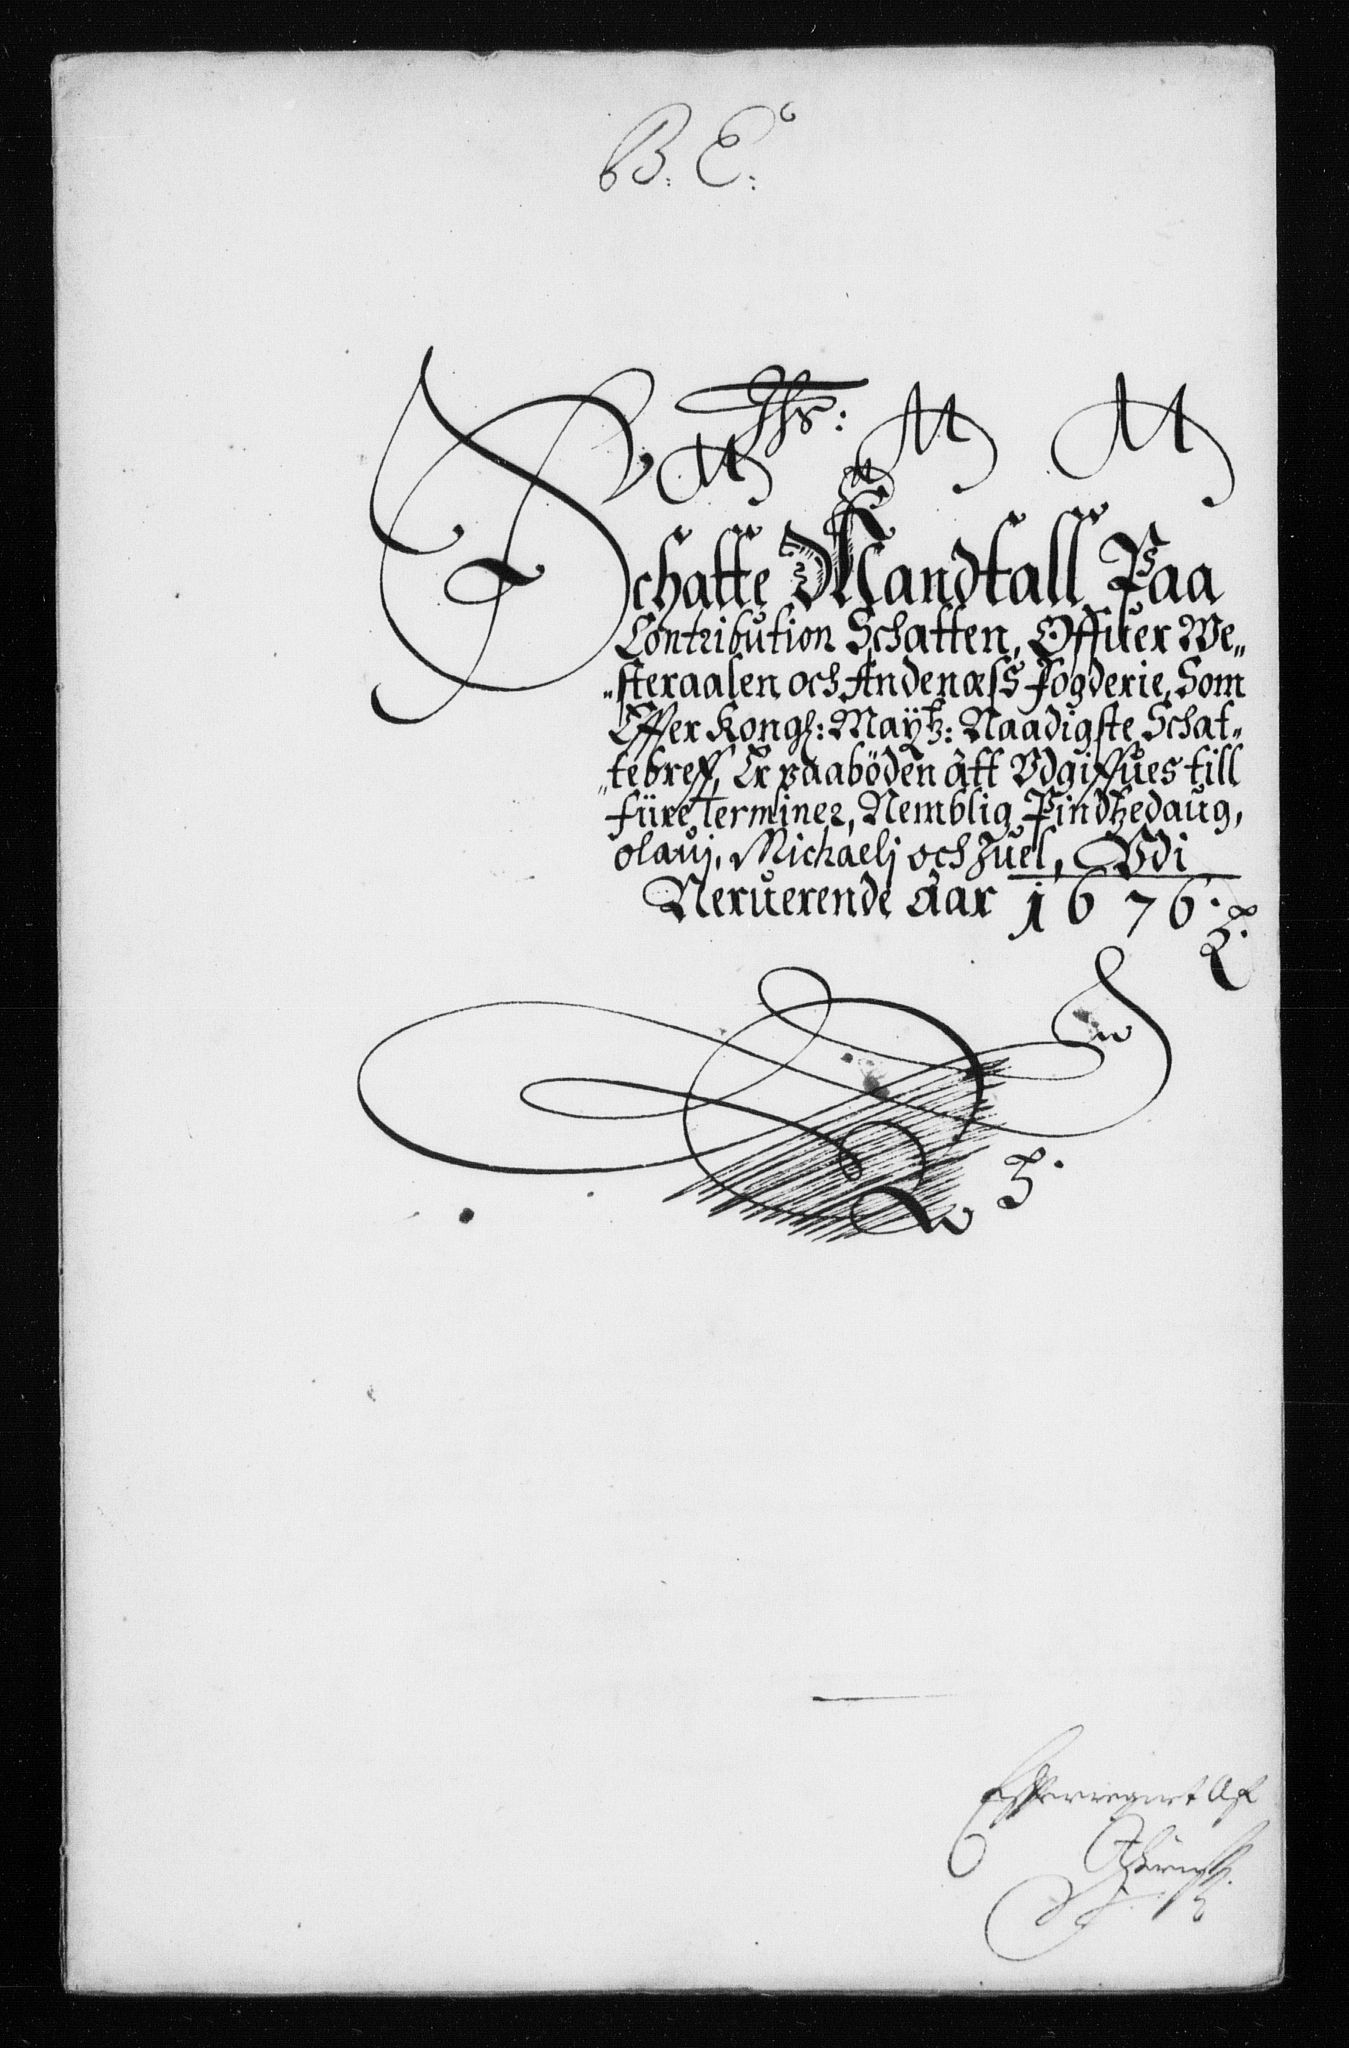 B: E:
Jhs:
Schatte Mandtall Paa
Contribution Schatten, Offuer We„
„steraalen och Andenæss fogderie, Som
Effter Kongl: Maytz: Naadigste Schat„
„tebreff, Er paaböden att Vdgiffues till
füre Terminer, Nemblig Pindtzedaug,
olauj, Michaelj och Juel, Vdi
Neruerende Aar 1676.
Efterregnet Af